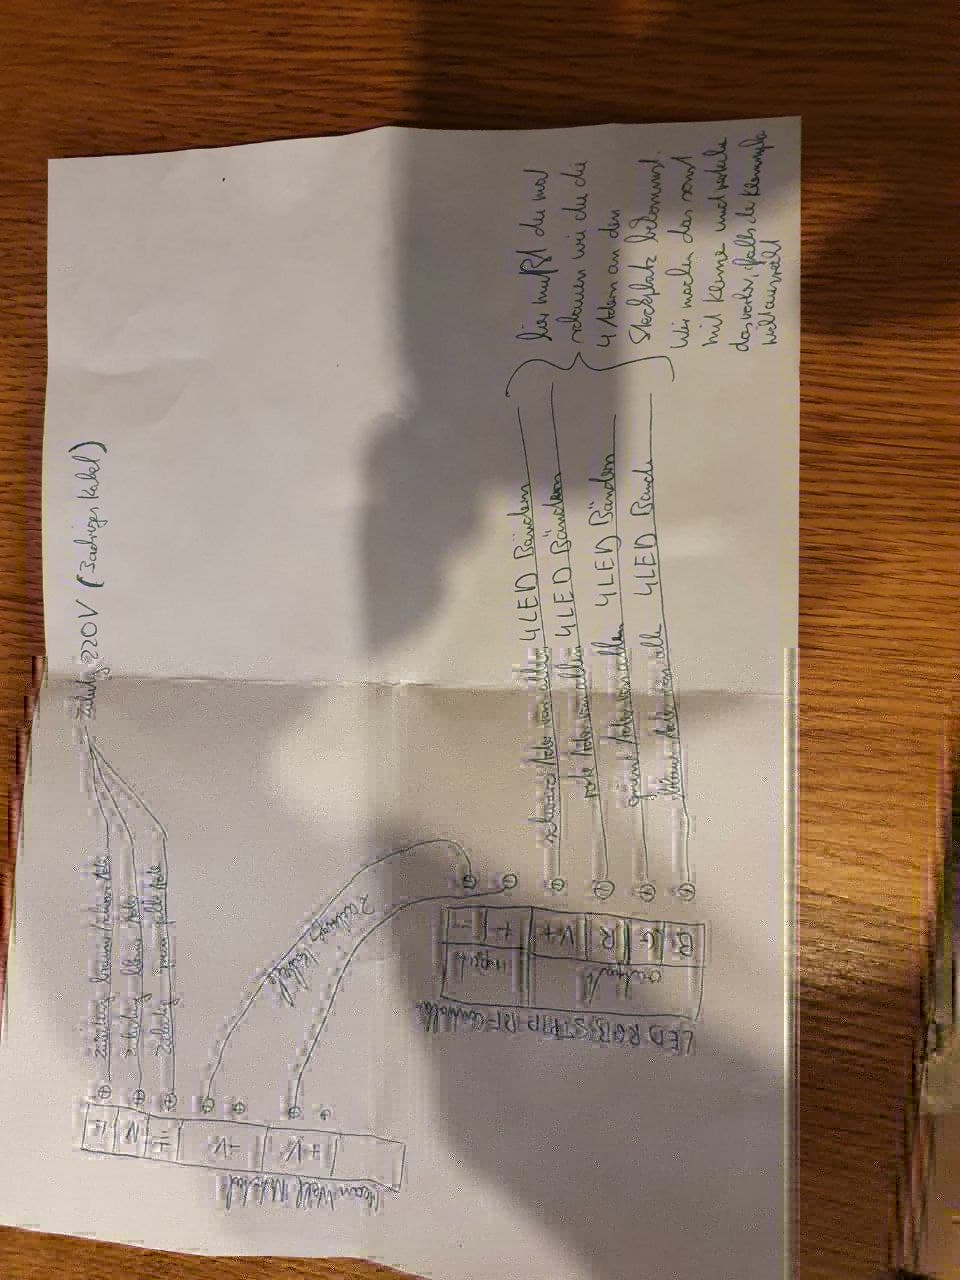 Zuleitung 220V (3adriges Kabel)
Zuleitung braune/schwarze Ader
Zuleitung blaue Ader
Zuleitung grün gelbe Ader
L
N
-V
+V
Mean Well Netzteil
2 adriges Kabel
-
+
V+
R
G
B
Input
Output
LED RGB STRIP RF Controller
schwarze Ader von allen 4 LED Bändern
rote Ader von allen 4 LED Bändern
grüne Ader von allen 4 LED Bändern
blaue Ader von alle 4 LED Bande
hier mußt du mal
schauen wie du die
4 Adern an den
Steckplatz bekommst.
Wir machen das sonst
mit Klemme und
das vorher, falls de